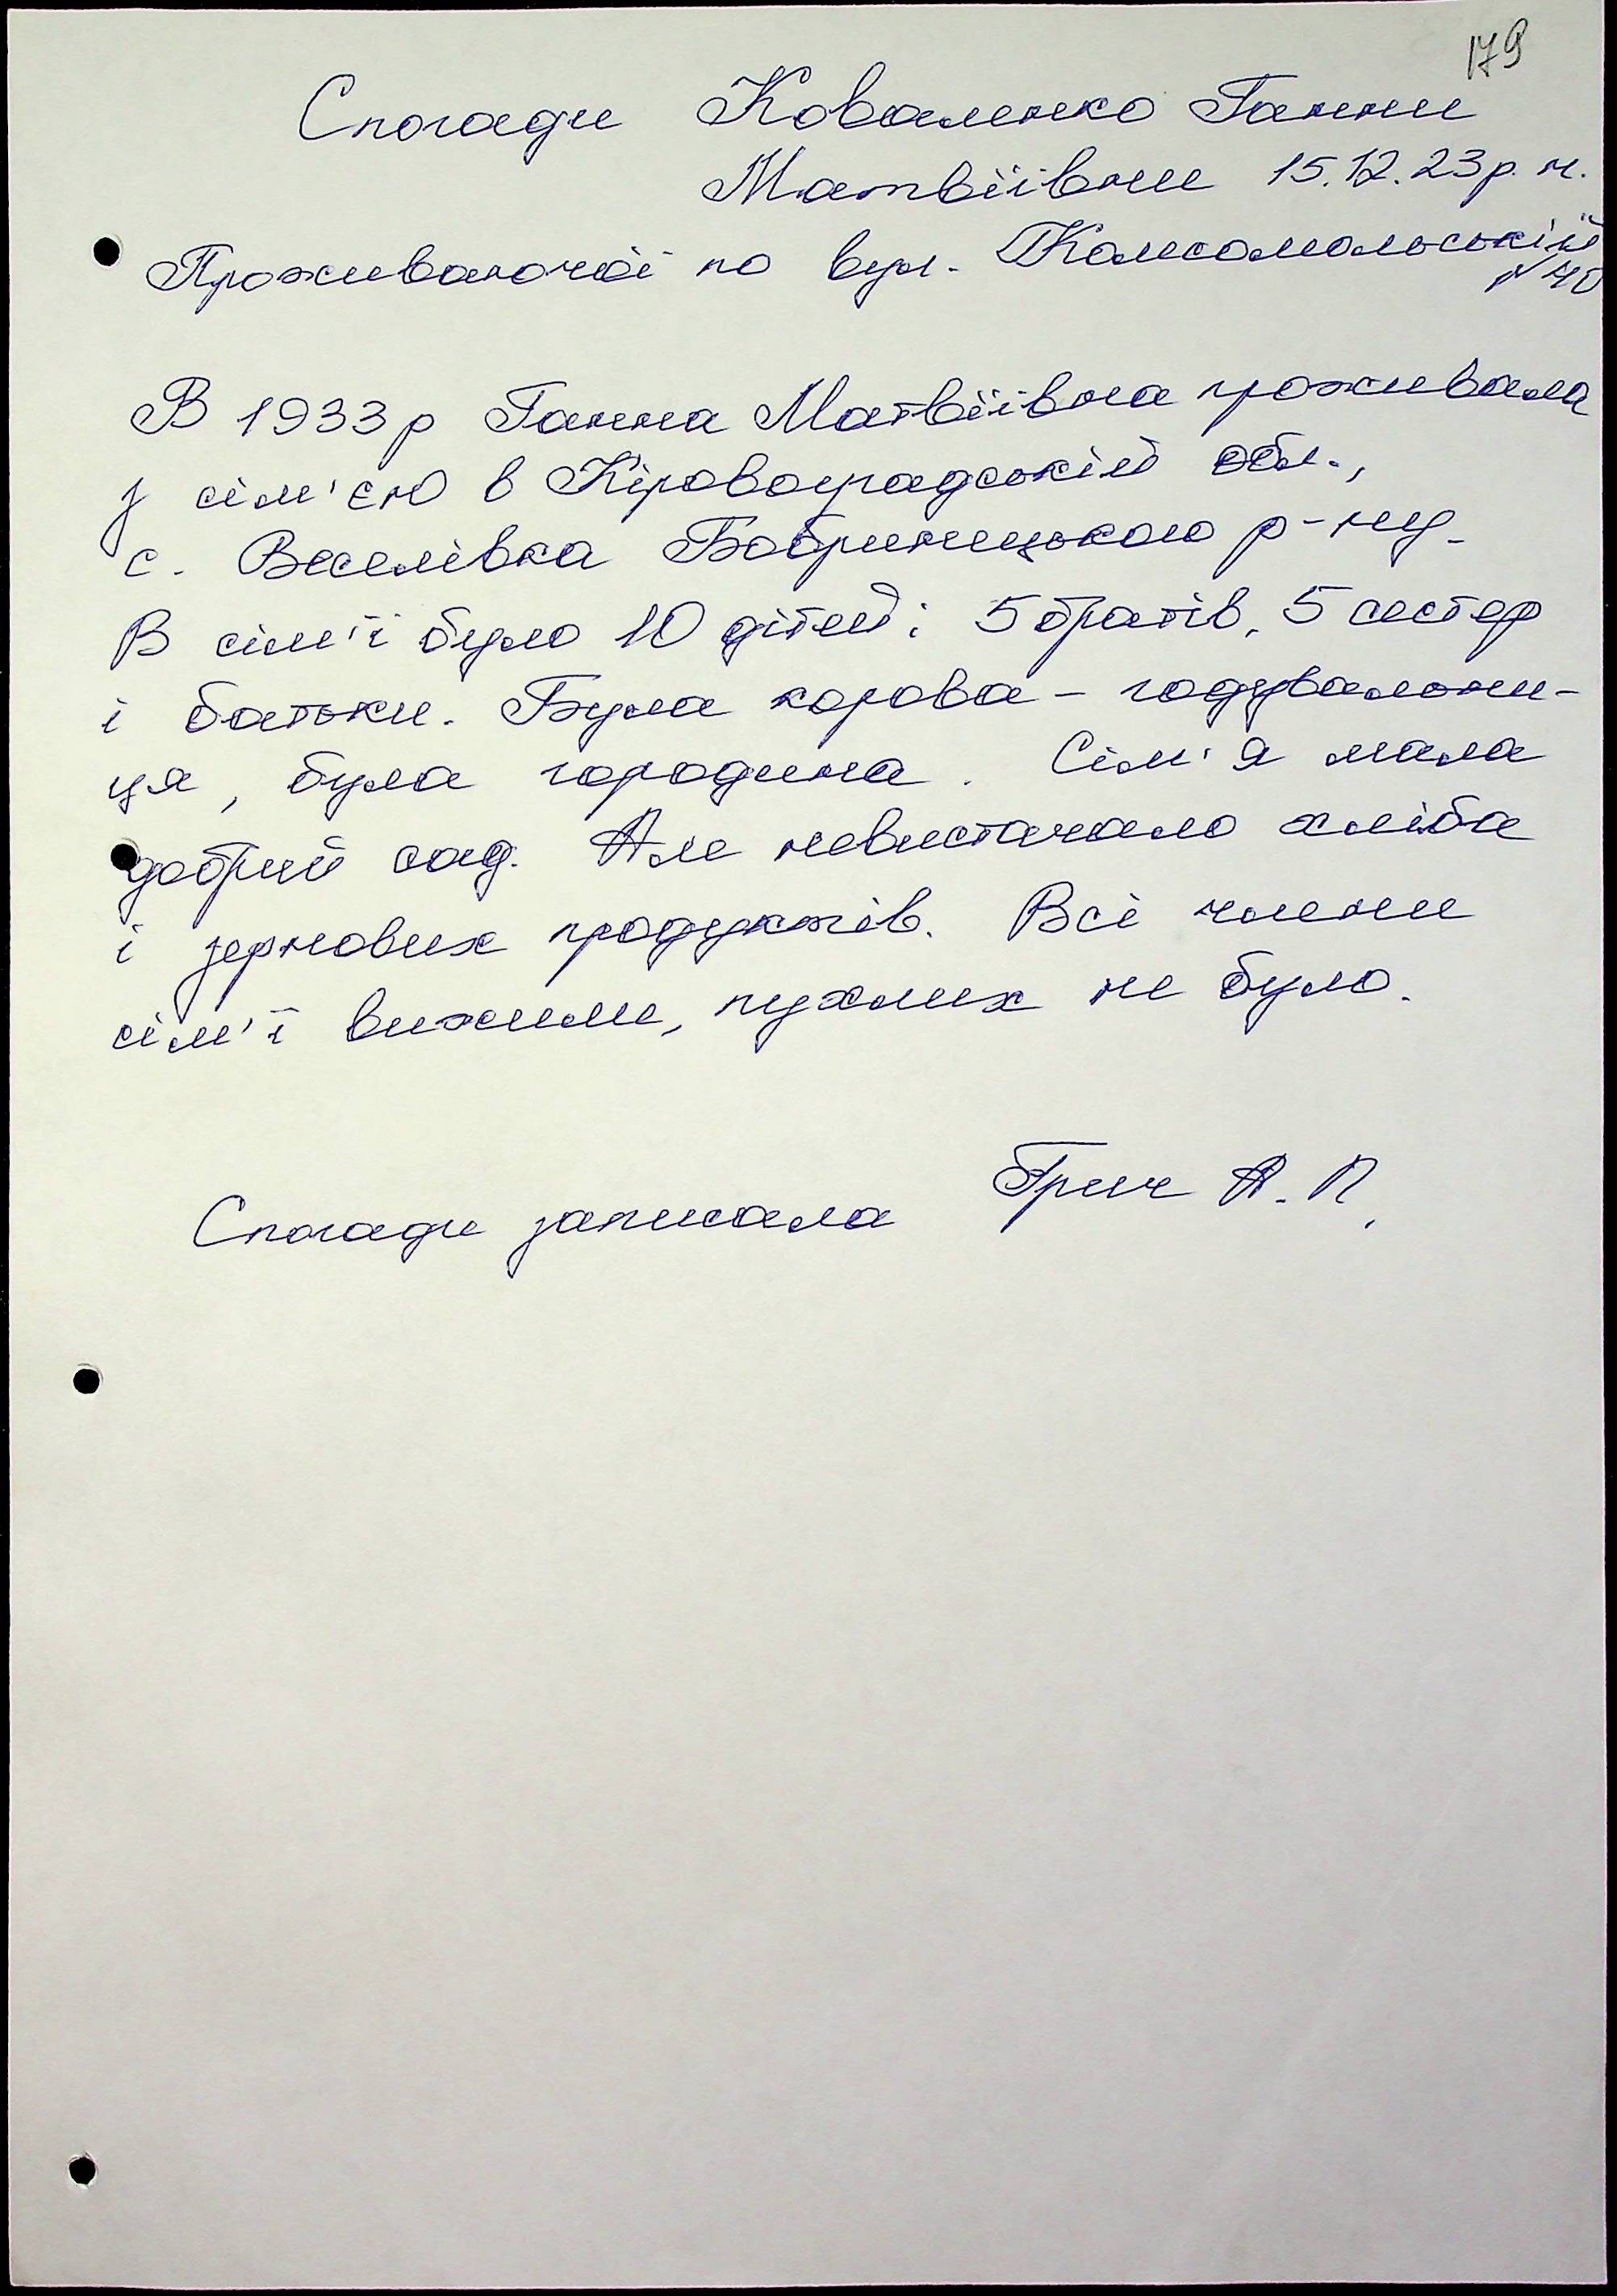 179
Спогади Коваленко Ганни
Матвіївни 15.12.23р. н.
Проживаючої по вул. Комсомольській
№ 40
В 1933р Ганна Матвіївна проживала
з сім'єю в Кіровоградській обл.,
с. Веселівка Бобринецького р-ну.
В сім'ї було 10 дітей: 5 братів, 5 сестер
і батьки. Була корова - годувальни-
ця, була городина. Сім'я мала
добрий сад. Але невистачало хліба
і зернових продуктів. Всі члени
сім'ї вижили, пухлих не було.
Спогади записала Грич А. П.